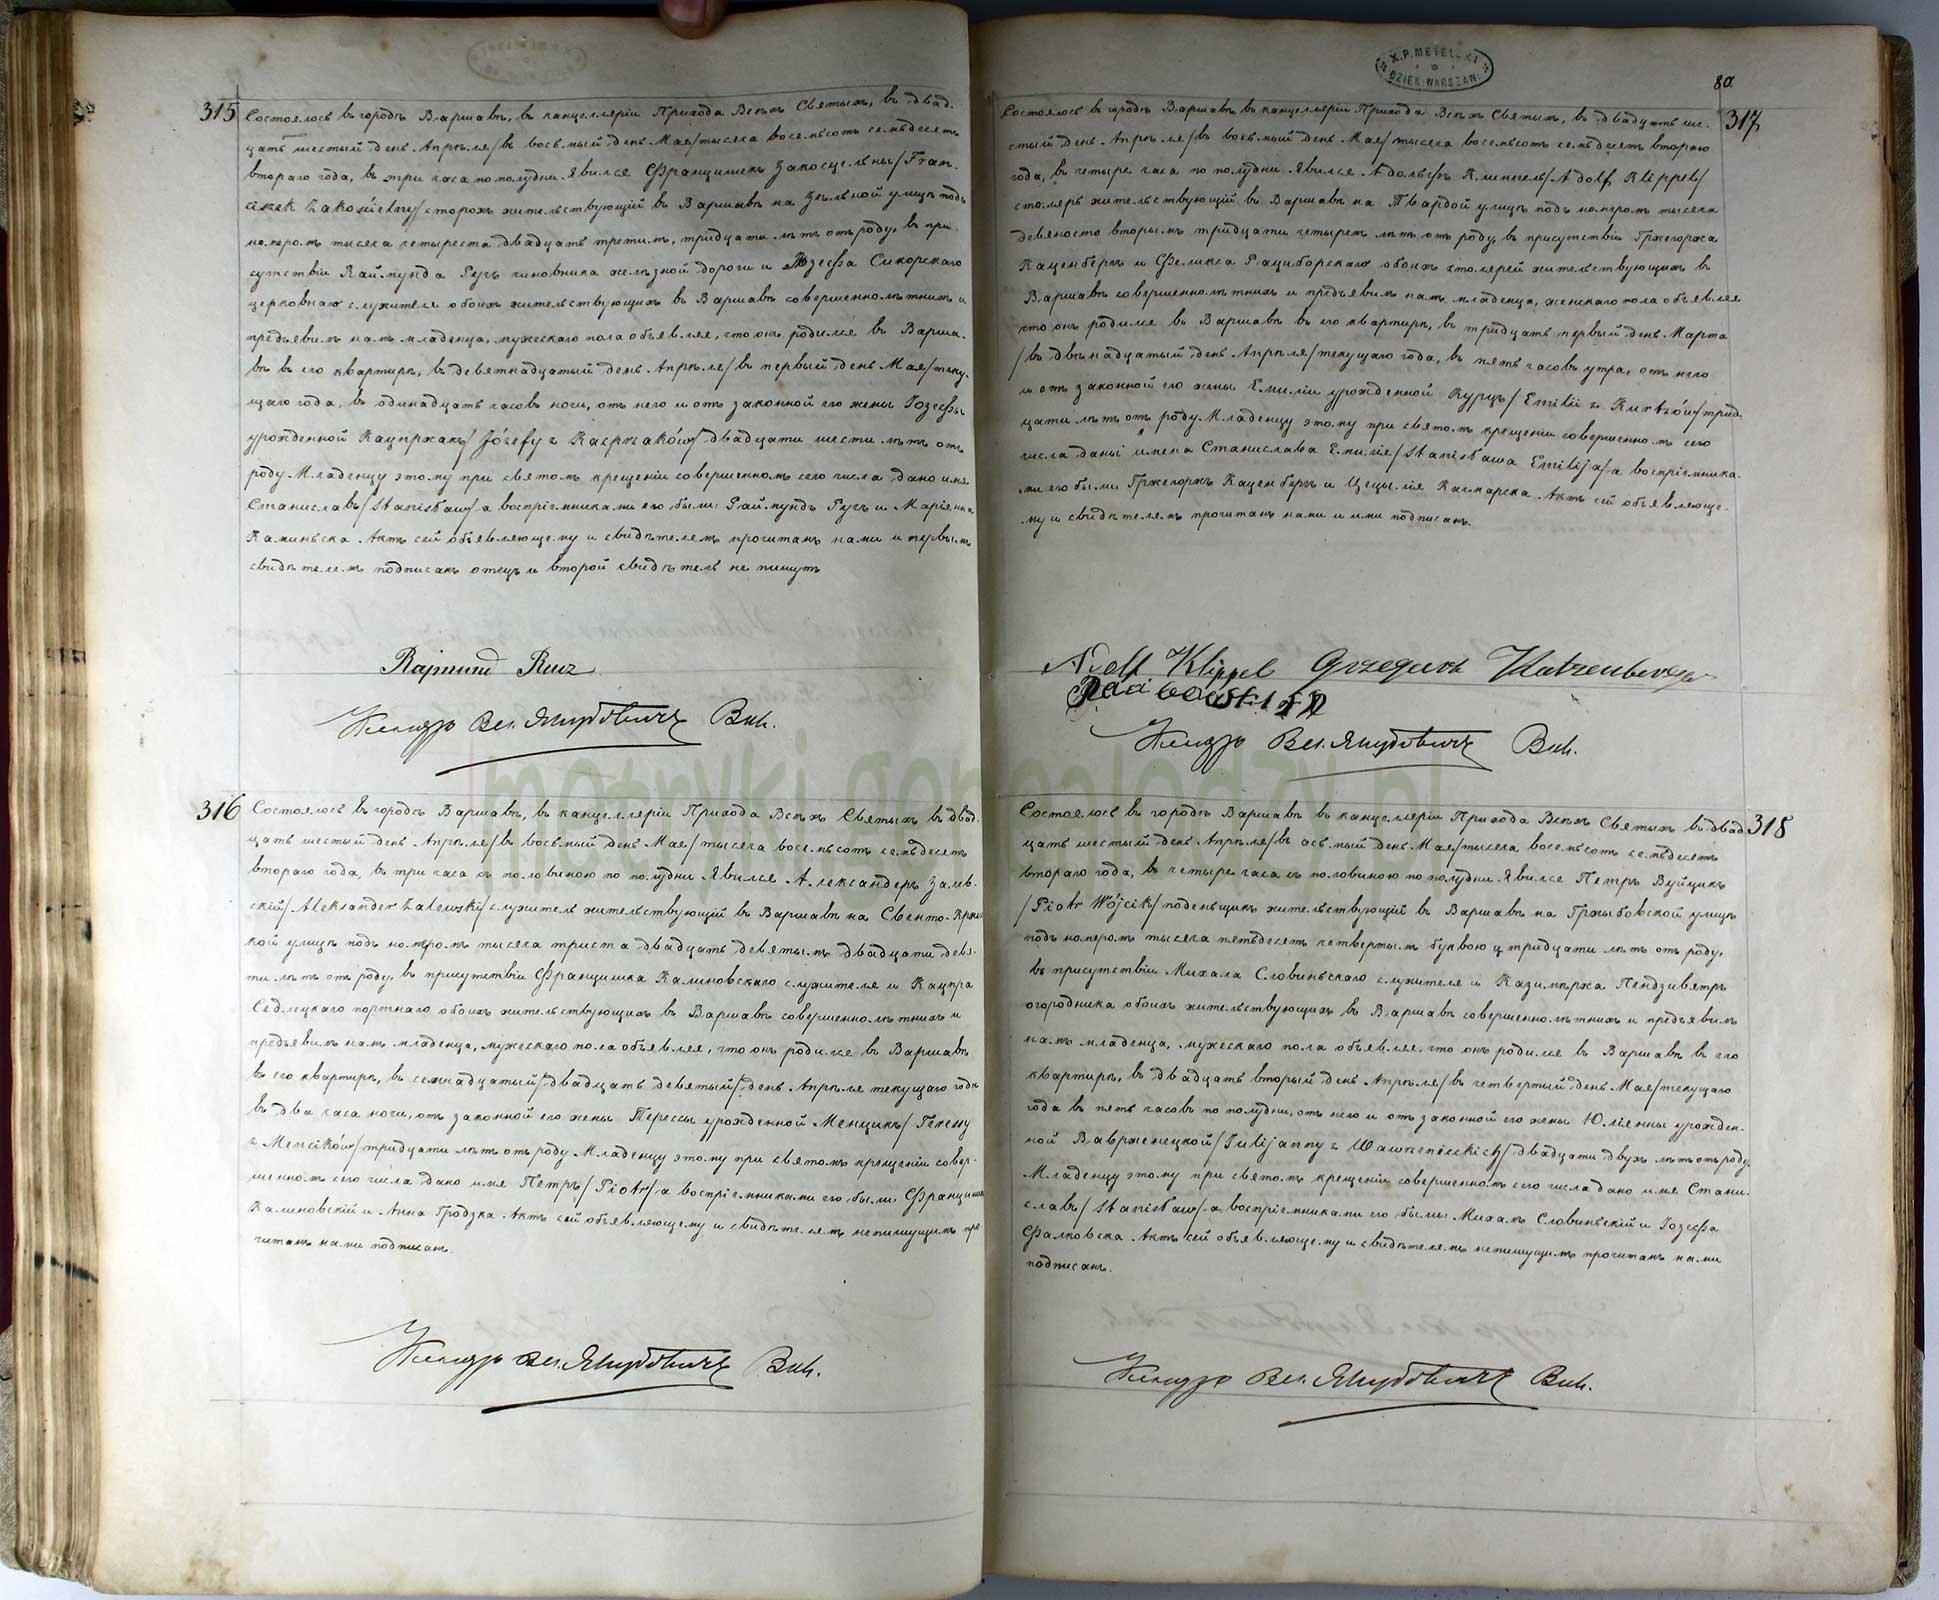 315
Состоялось въ городѣ Варшавѣ, въ канцелляріи Прихода Всѣхъ Святыхъ, въ двад-
цать шестый день Апрѣля/въ восьмый день Мая/тысяча восемьсотъ семьдесятъ
втораго года, въ три часа по полудни. Явился Францишекъ Закосцельны/Fran-
ciszek Zakościelny/сторожъ жительствующій въ Варшавѣ на Зѣльной улицѣ подъ
номеромъ тысяча четыреста двадцать третимъ, тридцати лѣтъ отъ роду, въ при-
сутствіи Раймунда Ручъ чиновника желѣзной дороги и Юзефа Сикорскаго
церковнаго служителя обоихъ жительствующихъ въ Варшавѣ совершеннолѣтнихъ и
предъявилъ намъ младенца, мужескаго пола объявляя, что онъ родился въ Варша-
вѣ въ его квартирѣ, въ девятнадцатый день Апрѣля/въ первый день Мая/теку-
щаго года, въ одинадцать часовъ ночи, отъ него и отъ законной его жены Іозефы
урожденной Кацпржакъ/Józefy z Kacprzaków/двадцати шести лѣтъ отъ
роду. Младенцу этому при святомъ крещеніи совершенномъ сего числа дано имя
Станиславъ/Stanisław/а воспріемниками его были: Раймундъ Ручъ и Маріянна
Каминьска. Актъ сей объявляющему и свидѣтелямъ прочитанъ нами и первымъ
свидѣтелемъ подписанъ отецъ и второй свидѣтель не пишутъ
Rajmund Rucz
316
Состоялось въ городѣ Варшавѣ, въ канцелляріи Прихода Всѣхъ Святыхъ въ двад-
цать шестый день Апрѣля/въ восьмый день Мая/тысяча восемьсотъ семьдесятъ
втораго года, въ три часа съ половиною по полудни. Явился Александеръ Залев-
скій/Aleksander Zalewski/служитель жительствующій въ Варшавѣ на Свенто-Крж
кой улицѣ подъ номеромъ тысяча триста двадцать девятымъ двадцати девя-
ти лѣтъ отъ роду, въ присутствіи Францишка Калиновскаго служителя и Кацпра
Седлецкаго портнаго обоихъ жительствующихъ въ Варшавѣ совершеннолѣтнихъ и
предъявилъ намъ младенца, мужескаго пола объявляя, что онъ родился въ Варшавѣ
въ его квартирѣ, въ семнадцатый/двадцать девятый/день Апрѣля текущаго года
въ два часа ночи, отъ законной его жены Терессы урожденной Менцикъ/Teressy
z Mencików/тридцати лѣтъ отъ роду. Младенцу этому при святомъ крещеніи совер-
шенномъ сего числа дано имя Петръ/Piotr/а воспріемниками его были: Францишекъ
Калиновскій и Анна Гродзка. Актъ сей объявляющему и свидѣтелямъ непишущимъ про-
читанъ нами подписанъ.
X.P. METELSKI
DZIEK. WARSZAW.
80
317
Состоялось въ городѣ Варшавѣ въ канцелляріи Прихода Всѣхъ Святыхъ, въ двадцать ше-
стый день Апрѣля/въ восьмый день Мая/тысяча восемьсотъ семьдесятъ втораго
года, въ четыре часа по полудни. Явился Адольфъ Клиппель/Adolf Klippel/
столяръ жительствующій въ Варшавѣ на Твардой улицѣ подъ номеромъ тысяча
девяносто вторымъ тридцати четырехъ лѣтъ отъ роду, въ присутствіи Гржегоржа
Каценбергъ и Феликса Рациборскаго обоихъ столярей жительствующихъ въ
Варшавѣ совершеннолѣтнихъ и предъявилъ намъ младенца, женскаго пола объявляя
что онъ родился въ Варшавѣ въ его квартирѣ, въ тридцать первый день Марта
/въ двѣнадцатый день Апрѣля/текущаго года, въ пять часовъ утра, отъ него
и отъ законной его жены Емиліи урожденной Курцъ/Emilii z Kurtzów/трид-
цати лѣтъ отъ роду. Младенцу этому при святомъ крещеніи совершенномъ сего
числа даны имена Станислава Емилія/Stanisława Emilija/а воспріемника-
ми его были Гржегоржъ Каценбергъ и Цецылія Качмарска. Актъ сей объявляюще-
му и свидѣтелямъ прочитанъ нами и ими подписанъ.
Adolf Klippel Grzegorz Katzenberger
318
Состоялось въ городѣ Варшавѣ въ канцелляріи Прихода Всѣхъ Святыхъ въ двад
цать шестый день Апрѣля/въ осьмый день Мая/тысяча восемьсотъ семьдесятъ
втораго года, въ четыре часа съ половиною по полудни. Явился Петръ Вуйцикъ
/Piotr Wójcik/поденьщикъ жительствующій въ Варшавѣ на Гржыбовской улицѣ
подъ номеромъ тысяча пятьдесятъ четвертымъ буквою ц тридцати лѣтъ отъ роду,
въ присутствіи Михала Словиньскаго служителя и Казимѣржа Пендзивятръ
огородника обоихъ жительствующихъ въ Варшавѣ совершеннолѣтнихъ и предъявилъ
намъ младенца, мужескаго пола объявляя, что онъ родился въ Варшавѣ въ его
квартирѣ, въ двадцать вторый день Апрѣля/въ четвертый день Мая/текущаго
года въ пять часовъ по полудни, отъ него и отъ законной его жены Юліянны урожден-
ной Вавржнецкой/Julijanny z Wawrznieckich/двадцати двухъ лѣтъ отъ роду.
Младенцу этому при святомъ крещеніи совершенномъ сего числа дано имя Стани-
славъ/Stanisław/а воспріемниками его были: Михалъ Словиньскій и Іозефа
Фалковска. Актъ сей объявляющему и свидѣтелямъ непишущимъ прочитанъ нами
подписанъ.
metryki.genealodzy.pl